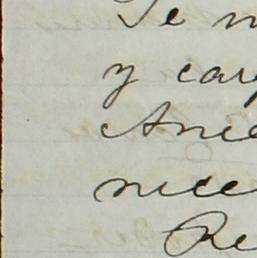 Te n
y car
Ani
nice
Re